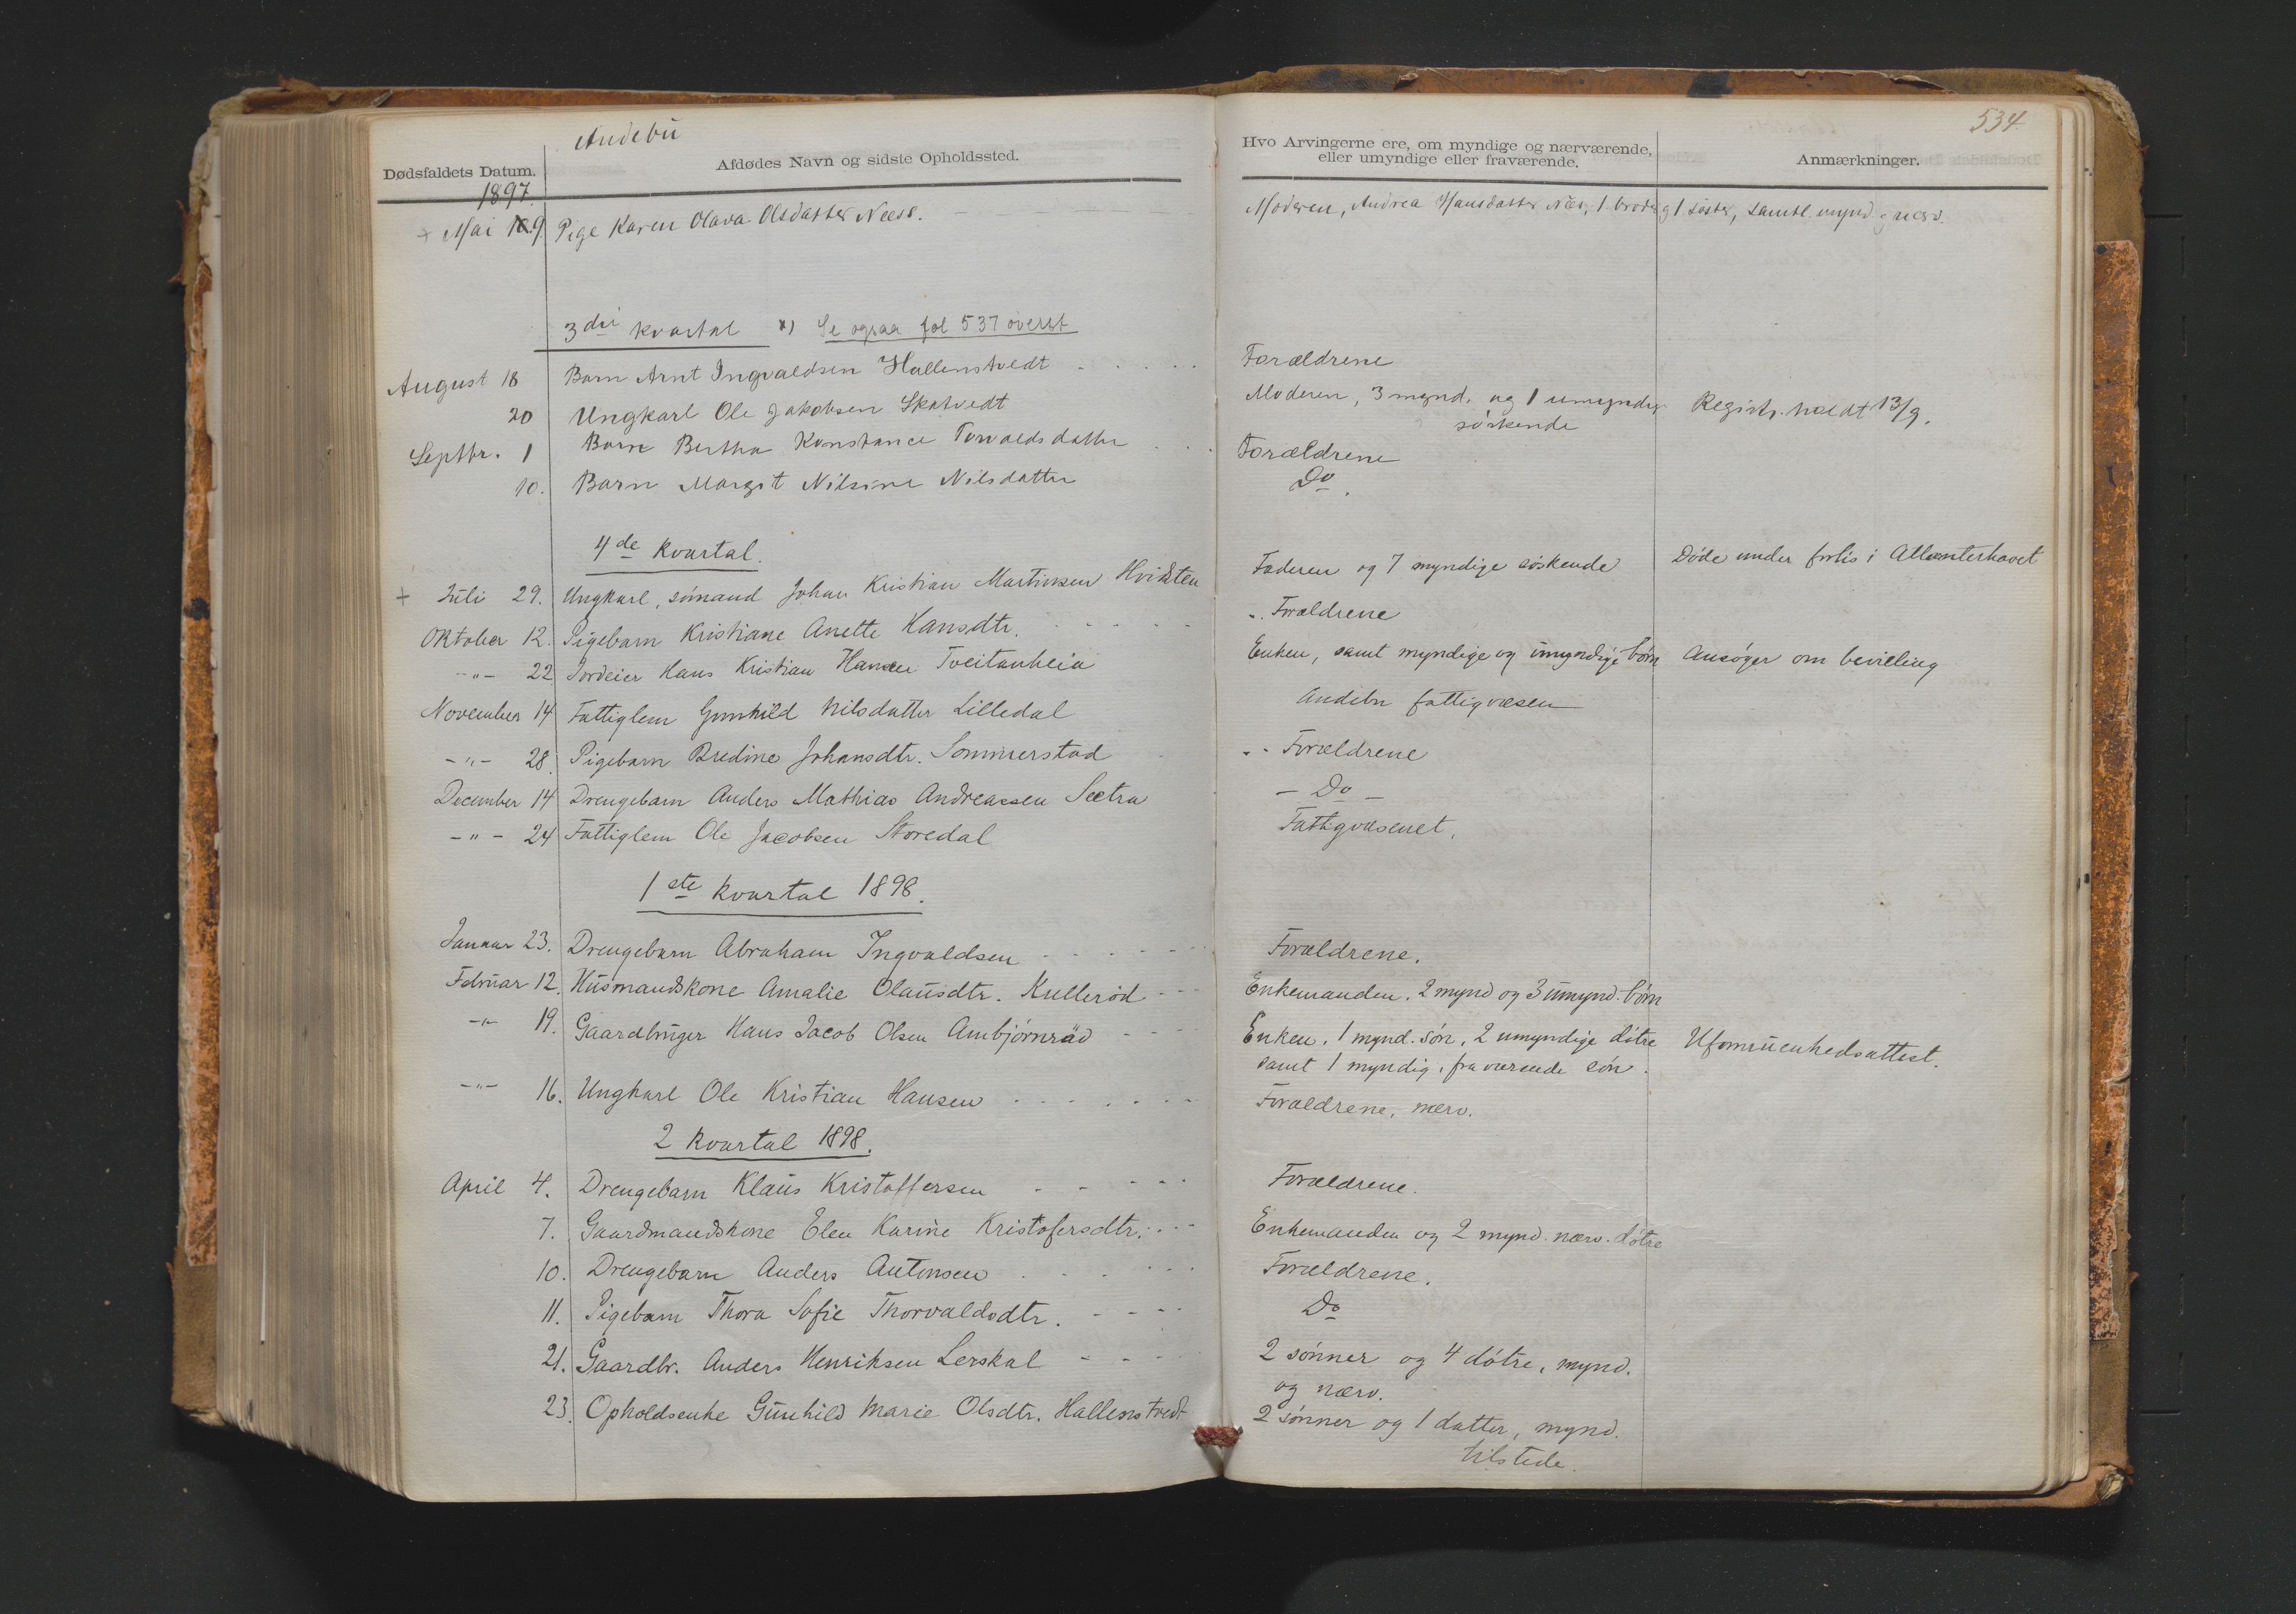 534
Andebu
Dødsfaldets Datum.
Afdødes Navn og sidste Opholdssted.
Hvo Arvingerne ere, om myndige og nærværende,
eller umyndige eller fraværende.
Anmærkninger.
1897.
+ Mai 9 Pige Karen Olava Olsdatter Neess. Moderen, Andrea Hansdatter Nes, 1 broder og 1 søster, samtl. mynd. og nærv.
3die kvartal x) Se ogsaa fol 537 øverst
August 18 Barn Arnt Ingvaldsen Hallenstvedt Forældrene
20 Ungkarl Ole Jakobsen Skatvedt Moderen, 3 mynd. og 1 umyndig Registr. holdt 13/9.
søskende
Septbr. 1 Barn Bertha Konstance Torvaldsdatter Forældrene
10. Barn Margit Nilsine Nilsdatter Do.
4de kvartal.
+ Juli 29. Ungkarl, sømand Johan Kristian Martinsen Hvidsten Faderen og 7 myndige søskende Døde under forlis i Atlanterhavet
Oktober 12. Pigebarn Kristiane Anette Hansdtr. Forældrene
-"- 22 Jordeier Hans Kristian Hansen Tveitanheia Enken, samt myndige og umyndige børn Ansøger om bevilling
November 14 Fattiglem Gunhild Nilsdatter Lilledal Andebu fattigvæsen
-"- 28. Pigebarn Bredine Johansdtr. Sommerstad Forældrene
December 14 Drengebarn Anders Mathias Andreassen Sætra - Do -
-"- 24 Fattiglem Ole Jacobsen Storedal Fattigvæsenet.
1ste kvartal 1898.
Januar 23. Drengebarn Abraham Ingvaldsen Forældrene.
Februar 12. Husmandskone Amalie Olausdtr. Kullerød Enkemanden. 2 mynd og 3 umynd. børn
-"- 19. Gaardbruger Hans Jacob Olsen Ambjørnrød Enken. 1 mynd. søn, 2 umyndige døtre Uformuenhedsattest.
samt 1 myndig, fraværende søn.
-"- 16. Ungkarl Ole Kristian Hansen Forældrene, nærv.
2 kvartal 1898.
April 4. Drengebarn Klaus Kristoffersen Forældrene.
7. Gaardmandskone Elen Karine Kristofersdtr. Enkemanden og 2 mynd. nærv. døtre
10. Drengebarn Anders Antonsen Forældrene.
11. Pigebarn Thora Sofie Thorvaldsdtr. Do
21. Gaardbr. Anders Henriksen Lerskal 2 sønner og 4 døtre, mynd.
og nærv.
23. Opholdsenke Gunhild Marie Olsdtr. Hallenstvedt 2 sønner og 1 datter, mynd.
tilstede.